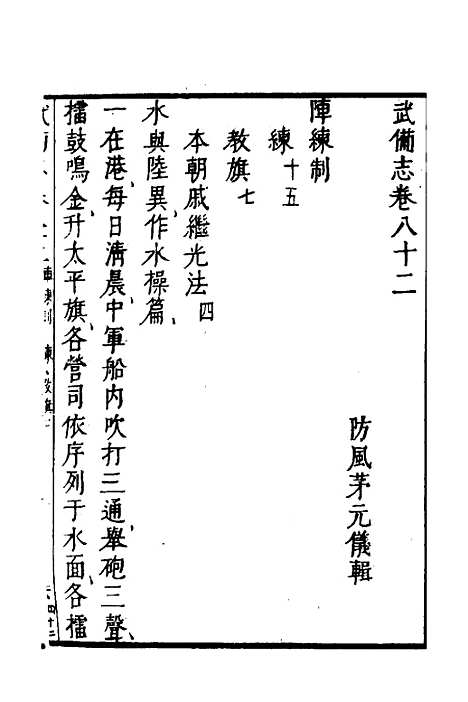 武備志卷八十二
防風茅元儀輯
陣練制
練十五
教旗七
本朝戚繼光法四
水與陸異作水操篇
一在港每日清晨中軍船内吹打三通舉砲三聲
擂鼓鳴金升太平旗各營司依序列于水面各擂